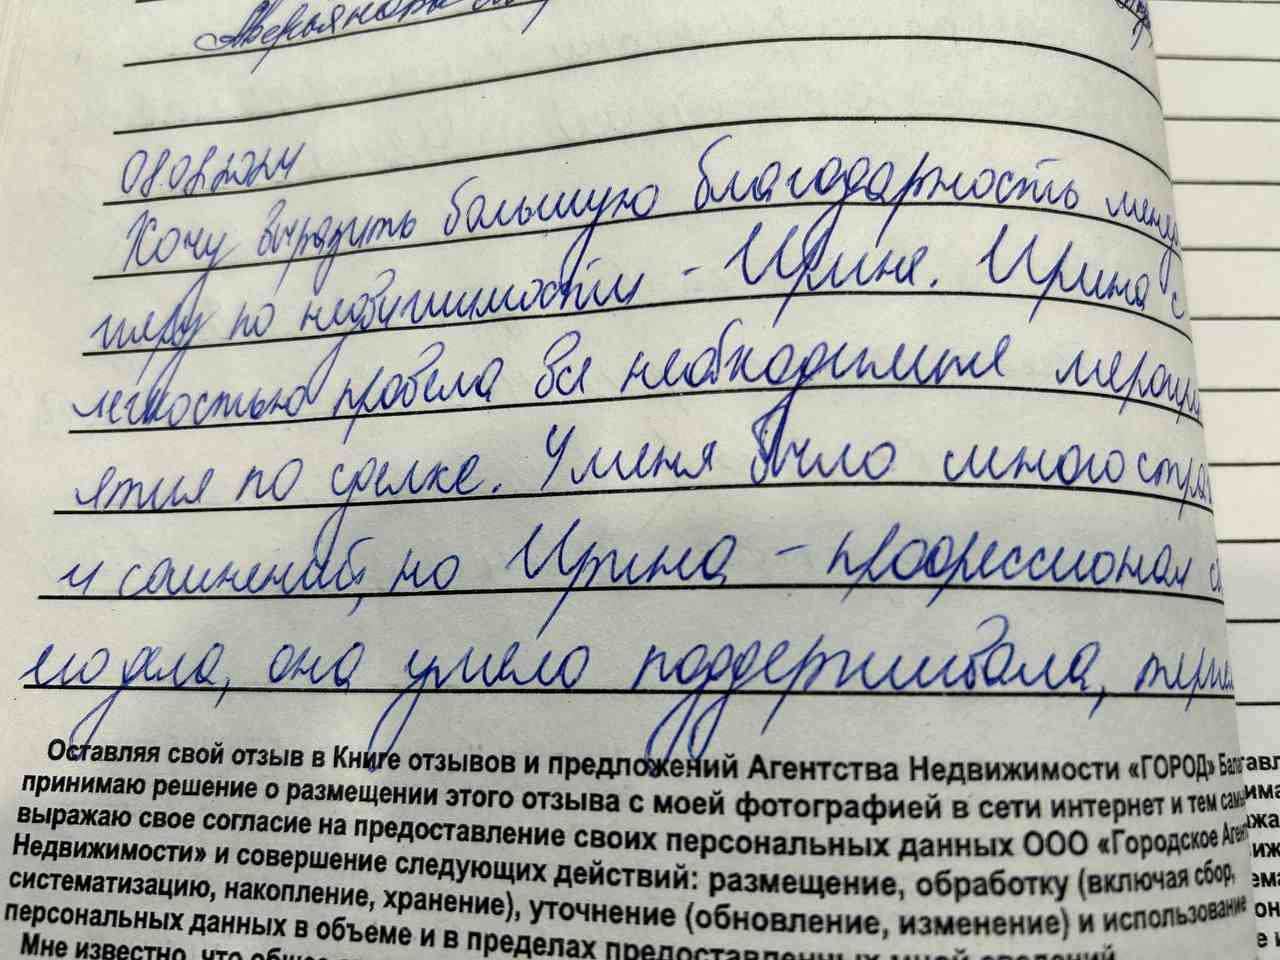 08.02.2024
Хочу выразить большую благодарность менед
жеру по недвижимости - Ирине. Ирина с
легкостью провела все необходимые меропри
ятия по сделке. У меня было много стра
и сомнений, но Ирина - профессионал с
го дела, она умело поддерживала,
Оставляя свой отзыв в Книге отзывов и предложений Агентства Недвижимости «ГОРОД»
принимаю решение о размещении этого отзыва с моей фотографией в сети интернет и тем самы
выражаю свое согласие на предоставление своих персональных данных ООО «Городское Аген
Недвижимости» и совершение следующих действий: размещение, обработку (включая сбор,
систематизацию, накопление, хранение), уточнение (обновление, изменение) и использование
персональных данных в объеме и в пределах предоставленных мной сведений.
Мне известно, что